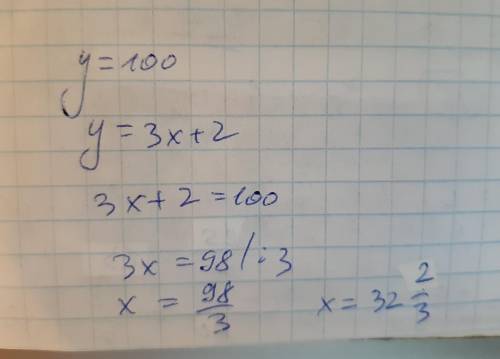 y = 100
y = 3x + 2
3x + 2 = 100
3x = 98 /:3
x = 98/3 x = 32 2/3